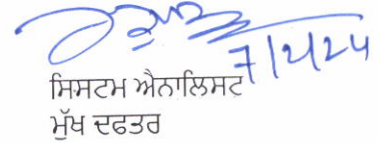 7/2/24
ਸਿਸਟਮ ਐਨਾਲਿਸਟ
ਮੁੱਖ ਦਫਤਰ